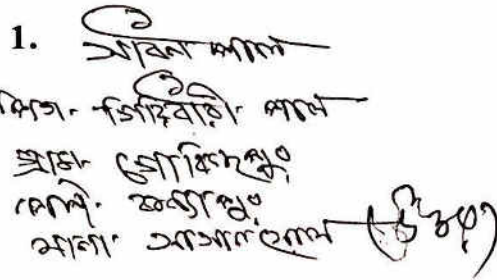 1. সাবিনা পাল
পিতা- গিরিধারী পাল
গ্রাম- গোবিন্দপুর
পোষ্ট- কন্যাপুর
থানা- আসানসোল (উত্তর)